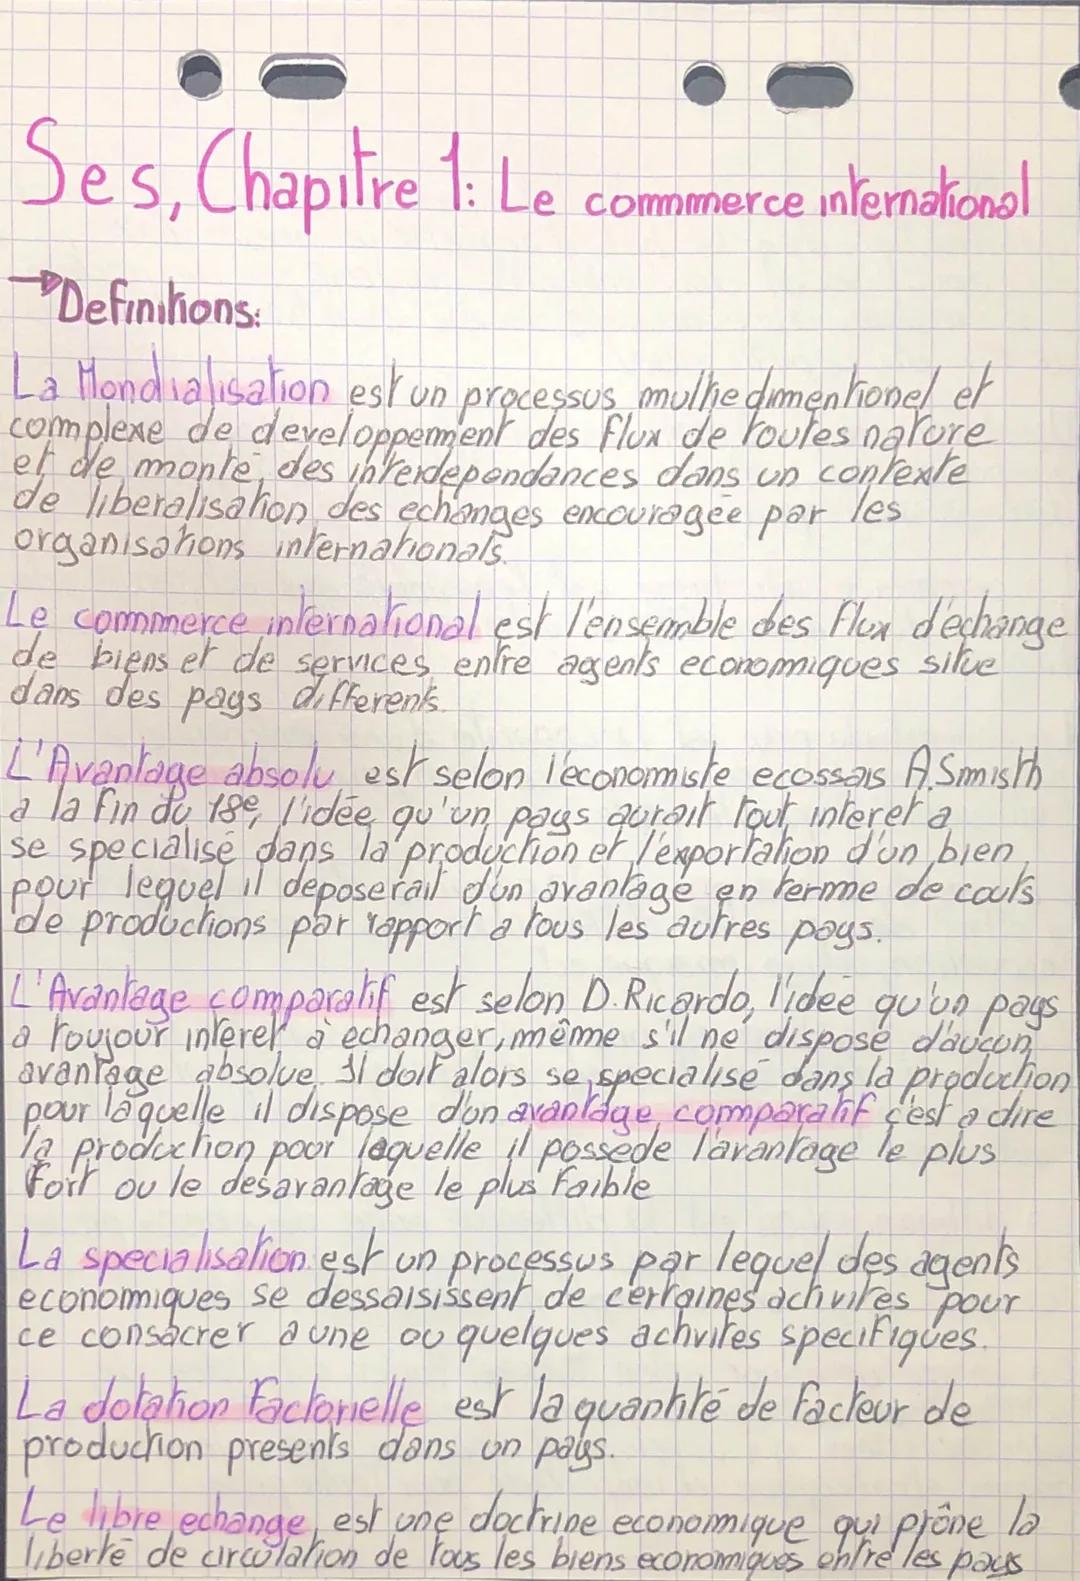 Ses, Chapitre 1: Le commmerce international
→Definitions:
La Mondialisation est un processus multiedimentionel et
complexe de developpement des flux de toutes nature
et de monté, des interdependances dans un contexte
de liberalisation des echanges encouragée par les
organisations internationals.
Le commmerce international est l'ensemble des flux d'echange
de biens et de services entre agents economiques situe
dans des pays differents.
L'Avantage absolu est selon l'economiste ecossais A.Smisth
a la fin du 18e, l'idée qu'un pays aurait tout interet a
se specialisé dans la production et l'exportation d'un bien
pour lequel il deposerait d'un avantage en terme de couts
de productions par rapport a tous les autres pays.
L'Avantage comparatif est selon D.Ricardo, l'idée qu'un pays
a toujour interet à echanger, même s'il ne dispose d'aucun
avantage absolue. Il doit alors se specialisé dans la production
pour laquelle il dispose d'un avantage comparatif c'est a dire
la production pour laquelle il possede l'avantage le plus
fort ou le desavantage le plus faible
La specialisation est un processus par lequel des agents
economiques se dessaisissent de certaines activites pour
ce consacrer a une ou quelques activites specifiques.
La dotation factorielle est la quantité de facteur de
production presents dans un pays.
Le libre echange est une doctrine economique qui prône la
liberté de circulation de tous les biens economiques entre les pays